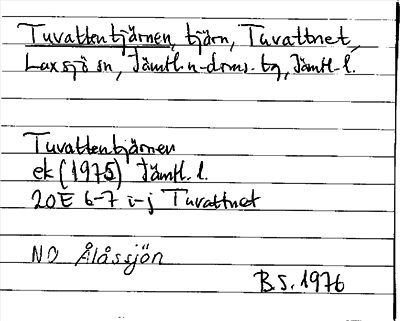 Tuvattentjärnen, tjärn, Tuvattnet,
Laxsjö sn, Jämtl. n. dms. tg, Jämtl. l.
Tuvattentjärnen
ek (1975) Jämtl. l.
20E 6-7 i-j Tuvattnet
NO Ålåssjön
B.S. 1976